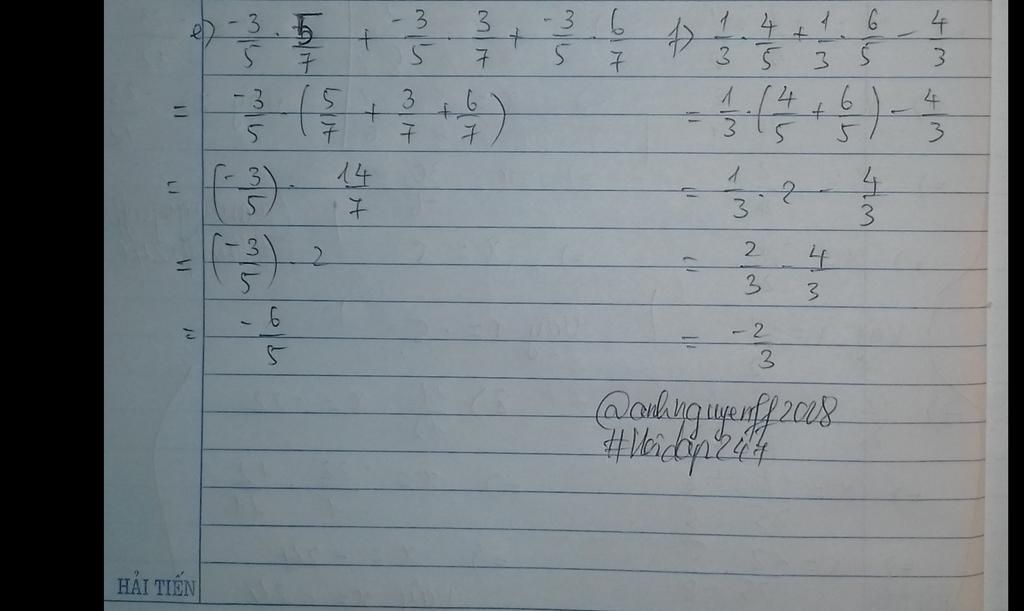 e) -3/5 . 5/7 + -3/5 . 3/7 + -3/5 . 6/7
= -3/5 . (5/7 + 3/7 + 6/7)
= (-3/5) . 14/7
= (-3/5) . 2
= -6/5
f) 1/3 . 4/5 + 1/3 . 6/5 - 4/3
= 1/3 . (4/5 + 6/5) - 4/3
= 1/3 . 2 - 4/3
= 2/3 - 4/3
= -2/3
@anhnguyenff2008
#Hoidap247
HẢI TIẾN